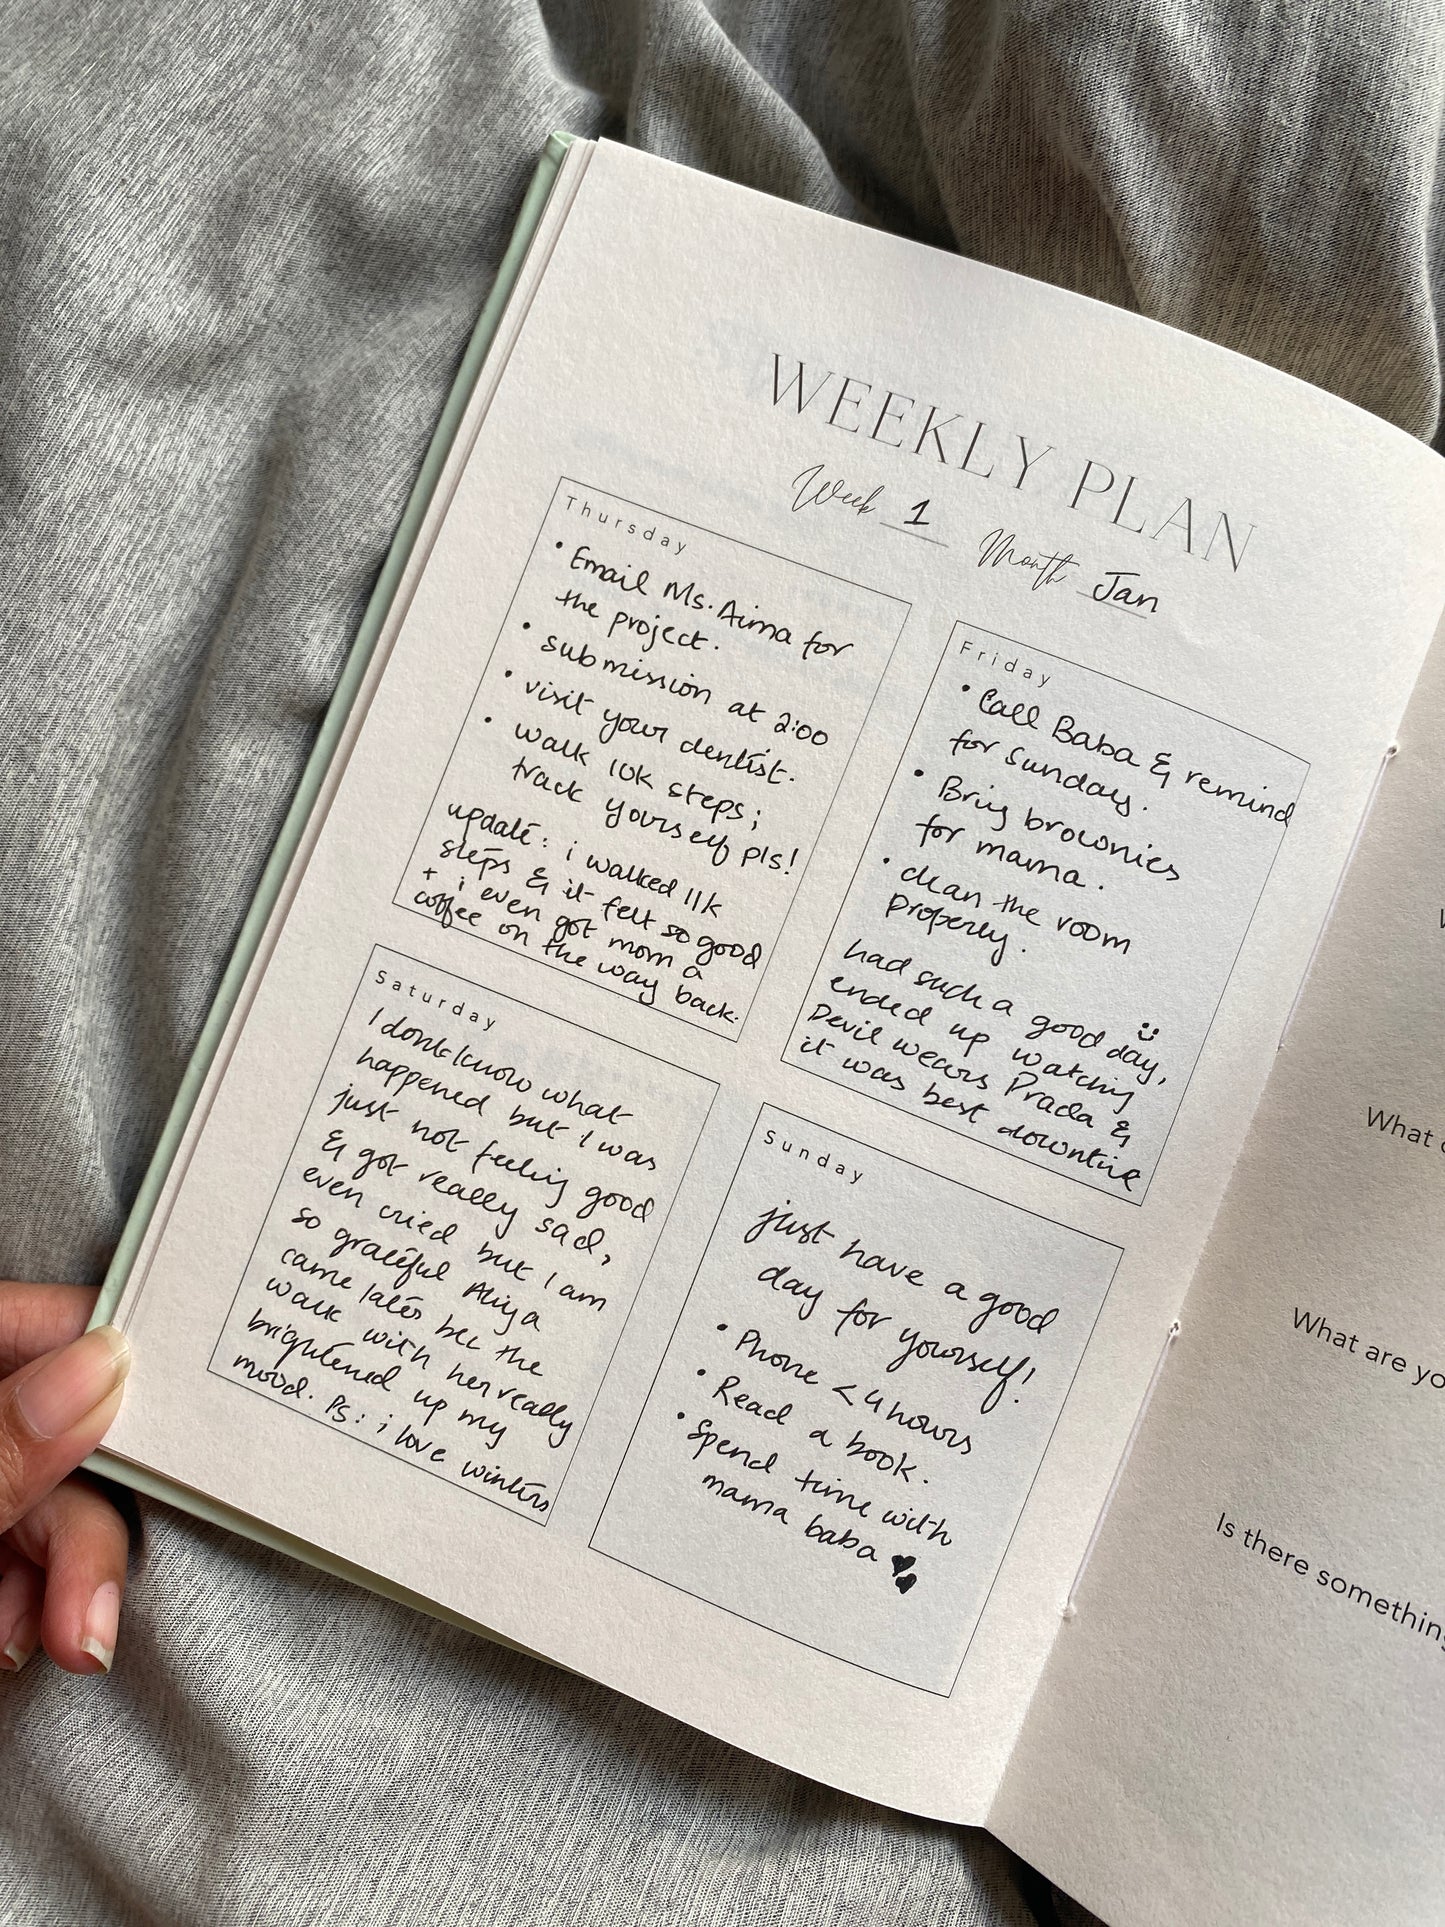 WEEKLY PLAN
Week 1 Month Jan
Thursday
• Email Ms. Aima for
the project.
• submission at 2:00
• visit your dentist.
• walk 10k steps;
track yourself pls!
update: i walked 11k
steps & it felt so good
+ i even got mom a
coffee on the way back.
Friday
• Call Baba & remind
for Sunday.
• Bring brownies
for mama.
• clean the room
properly.
had such a good day,
ended up watching
Devil wears Prada &
it was best downtime
Saturday
I dont know what
happened but I was
just not feeling good
& got really sad,
even cried but I am
so grateful Aliya
came later bcz the
walk with her really
brightened up my
mood. Ps: i love winters
Sunday
just have a good
day for yourself!
• Phone < 4 hours
• Read a book.
• Spend time with
mama baba
What
What are yo
Is there something